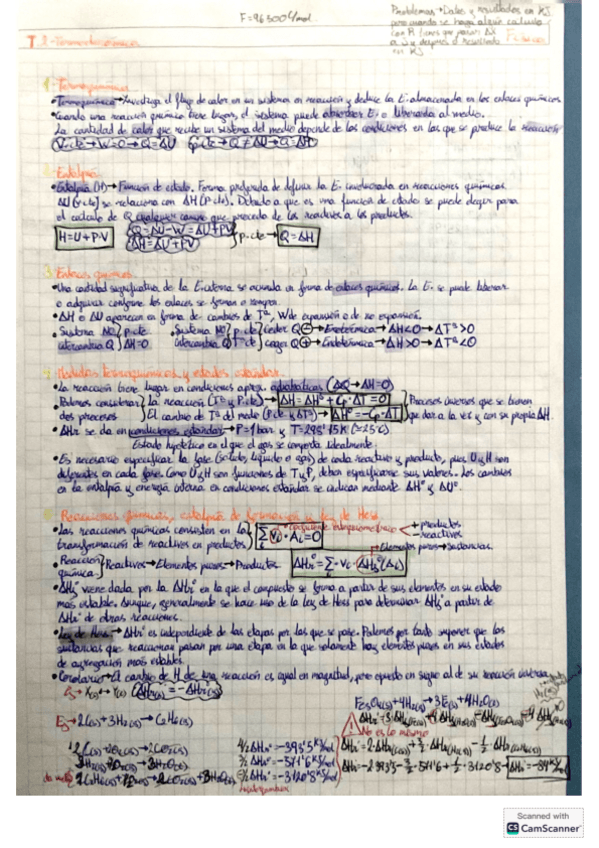 F=96500 C/mol
Problemas→Datos y resultados en KJ,
pero cuando se haga algún cálculo
con R tienes que pasar ΔX
a J y después el resultado
en KJ.
T.2-Termoquímica
1-Termoquímica
•Termoquímica→Investiga el flujo de calor en un sistema en reacción y deduce la E. almacenada en los enlaces químicos.
•Cuando una reacción química tiene lugar, el sistema puede absorber E. o liberarla al medio.
La cantidad de calor que recibe un sistema del medio depende de las condiciones en las que se produce la reacción
V-cte→W=0→Q=ΔU P-cte→Q≠ΔU→Q=ΔH
2-Entalpía
•Entalpía (H)→Función de estado. Forma preferida de definir la E. involucrada en reacciones químicas.
ΔU (V-cte) se relaciona con ΔH (P-cte). Debido a que es una función de estado se puede elegir para
el cálculo de Q cualquier camino que proceda de los reactivos a los productos.
H=U+P·V Q=ΔU-W=ΔU+PV ΔH=ΔU+PV P-cte→Q=ΔH
3-Enlaces químicos
•Una cantidad significativa de la E. interna se acumula en forma de enlaces químicos. La E. se puede liberar
o adquirir conforme los enlaces se forman o rompen.
•ΔH o ΔU aparecen en forma de cambios de Tª, W de expansión o de no expansión.
•Sistema NO P-cte •Sistema NO P-cte ceder Q⊖→Exotérmica→ΔH<0→ΔTª>0
intercambia Q ΔH=0 intercambia Q Tª-cte coger Q⊕→Endotérmica→ΔH>0→ΔTª<0
Medidas termoquímicas y estados estándar.
•La reacción tiene lugar en condiciones aprox. adiabáticas (ΔQ→ΔH=0)
•Podemos considerar La reacción (Tª y P-cte)→ΔH=ΔHº+Cp·ΔT=0 Procesos inversos que se tienen
dos procesos El cambio de Tª del medio (P-cte y ΔTª)→ΔHº=-Cp·ΔT que dar a la vez y con su propia ΔH.
•ΔHr se da en condiciones estándar→P=1 bar y T=298'15K (≈25ºC)
Estado hipotético en el que el gas se comporta idealmente.
•Es necesario especificar la fase (sólido, líquido o gas) de cada reactivo y producto, pues U y H son
diferentes en cada fase. Como U y H son funciones de T y P, deben especificarse sus valores. Los cambios
en la entalpía y energía interna en condiciones estándar se indican mediante ΔHº y ΔUº.
Reacciones químicas, entalpía de formación y ley de Hess
•Las reacciones químicas consisten en la transformación de reactivos en productos
coeficiente estequiométrico + productos - reactivos
•Reacción química Reactivos→Elementos puros→Productos
Elementos puros→sustancias.
•ΔHfº viene dada por la ΔHrº en la que el compuesto se forma a partir de sus elementos en su estado
más estable. Aunque, generalmente se hace uso de la ley de Hess para determinar ΔHfº a partir de
ΔHrº de otras reacciones.
•Ley de Hess→ΔHrº es independiente de las etapas por las que se pase. Podemos por tanto suponer que las
sustancias que reaccionan pasan por una etapa en la que solamente hay elementos puros en sus estados
de agregación más estables.
•Corolario→El cambio de H de una reacción es igual en magnitud, pero opuesto en signo al de su reacción inversa.
Fe3O4(s)+4H2(g)→3Fe(s)+4H2O(l)
No es lo mismo
Ej→2C(s)+3H2(g)→C2H6(g)
ΔHr=-2·393'5-3/2·571'6+1/2·3120'8→ΔHr=-84 KJ/mol
Scanned with
CS CamScanner